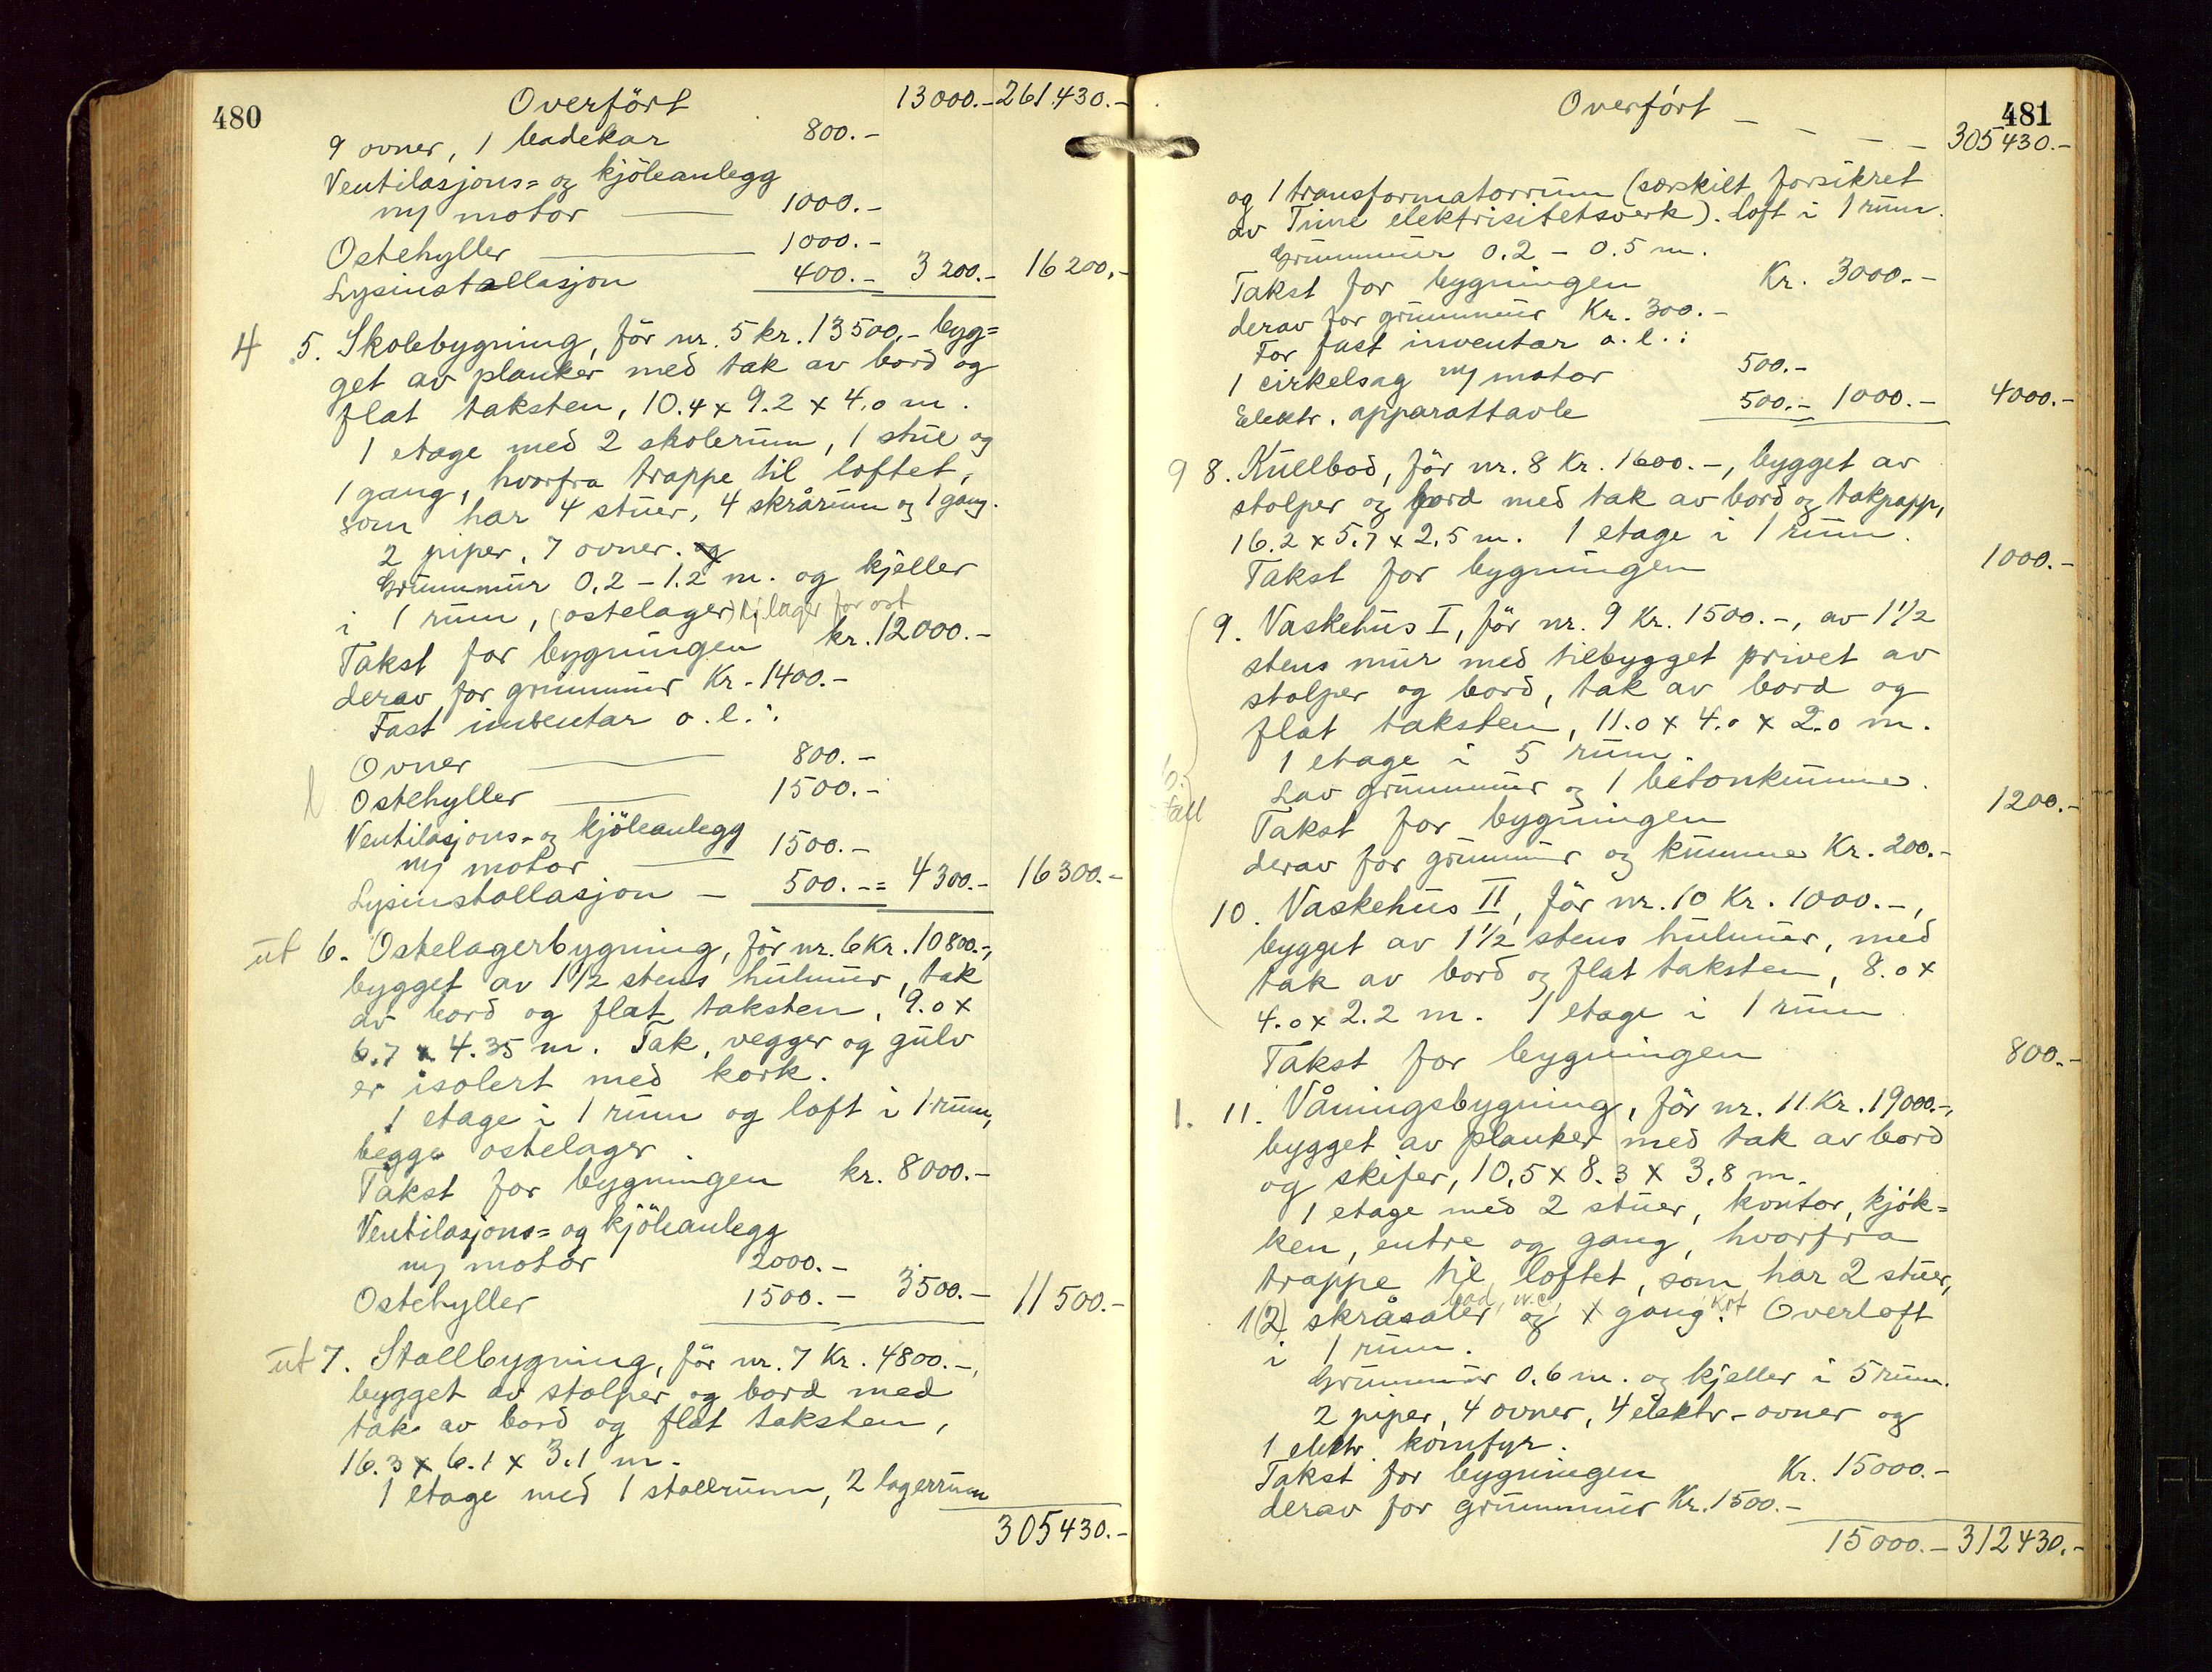 480
Overfört 13000.- 261.430.-
9 ovner, 1 badekar 800.-
Ventilasjons= og kjöleanlegg
m/ motor 1000.-
Ostehyller 1000.-
Lysinstallasjon 400.- 3200.- 16200.-
4 5. Skolebygning, för nr. 5 kr. 13500.- byg=
get av planker med tak av bord og
flat taksten, 10.4 x 9.2 x 4.0 m.
1 etage med 2 skolerum, 1 stue og
1 gang, hvorfra trappe til loftet,
som har 4 stuer, 4 skrårum og 1 gang.
2 piper, 7 ovner. og
Grunnmur 0.2 - 1.2 m. og kjeller
i 1 rum, (ostelager) lager for ost
Takst for bygningen kr. 12000.-
derav for grunnmur Kr. 1400.-
Fast inventar o.l.:
Ovner 800.-
Ostehyller 1500.-
Ventilasjons- og kjöleanlegg
m/ motor 1500.-
Lysinstallasjon - 500.-= 4300.- 16300.-
ut 6. Ostelagerbygning, för nr. 6 Kr. 10800.-,
bygget av 1 1/2 stens hulmur, tak
av bord og flat taksten, 9.0 x
6.7 x 4.35 m. Tak, vegger og gulv
er isolert med kork.
1 etage i 1 rum og loft i 1 rum,
begge ostelager
Takst for bygningen kr. 8000.-
Ventilasjons= og kjöleanlegg
m/ motor 2000.-
Ostehyller 1500.- 3500.- 11500.-
ut 7. Stallbygning, för nr. 7 Kr. 4800.-,
bygget av stolper og bord med
tak av bord og flat taksten,
16.3 x 6.1 x 3.1 m.
1 etage med 1 stallrum, 2 lagerrum
305430.-
481
Overfört - - - - 305430.-
og 1 transformatorrum (særskilt forsikret
av Time elektrisitetsverk). Loft i 1 rum.
Grunnmur 0.2 - 0.5 m.
Takst for bygningen Kr. 3000.-
derav for grunnmur Kr. 300.-
For fast inventar o.l.:
1 cirkelsag m/ motor 500.-
Elektr. apparattavle 500.- 1000.- 4000.-
9 8. Kullbod, för nr. 8 Kr. 1600.-, bygget av
stolper og bord med tak av bord og takpapp,
16.2 x 5.7 x 2.5 m. 1 etage i 1 rum.
Takst for bygningen 1000.-
9. Vaskehus I, för nr. 9 Kr. 1500.-, av 1 1/2
stens mur med tilbygget privet av
stolper og bord, tak av bord og
flat taksten, 11.0 x 4.0 x 2.0 m.
1 etage i 5 rum.
Lav grunnmur og 1 betonkumme.
Takst for bygningen 1200.-
derav for grunnmur og kumme Kr. 200.-
10. Vaskehus II, för nr. 10 Kr. 1000.-,
bygget av 1 1/2 stens hulmur, med
tak av bord og flat taksten, 8.0 x
4.0 x 2.2 m. 1 etage i 1 rum
Takst for bygningen 800.-
1. 11. Våningsbygning, för nr. 11 Kr. 19000.-,
bygget av planker med tak av bord
og skifer, 10.5 x 8.3 x 3.8 m.
1 etage med 2 stuer, kontor, kjök=
ken, entre og gang, hvorfra
trappe til loftet, som har 2 stuer,
bad, w.c.
1(2) skråsaler og x gang. Overloft
i 1 rum.
Grunnmur 0.6 m. og kjeller i 5 rum.
2 piper, 4 ovner, 4 elektr. ovner og
1 elektr. komfyr.
Takst for bygningen Kr. 15000.-
derav for grunnmur Kr. 1500.-
15000.- 312430.-